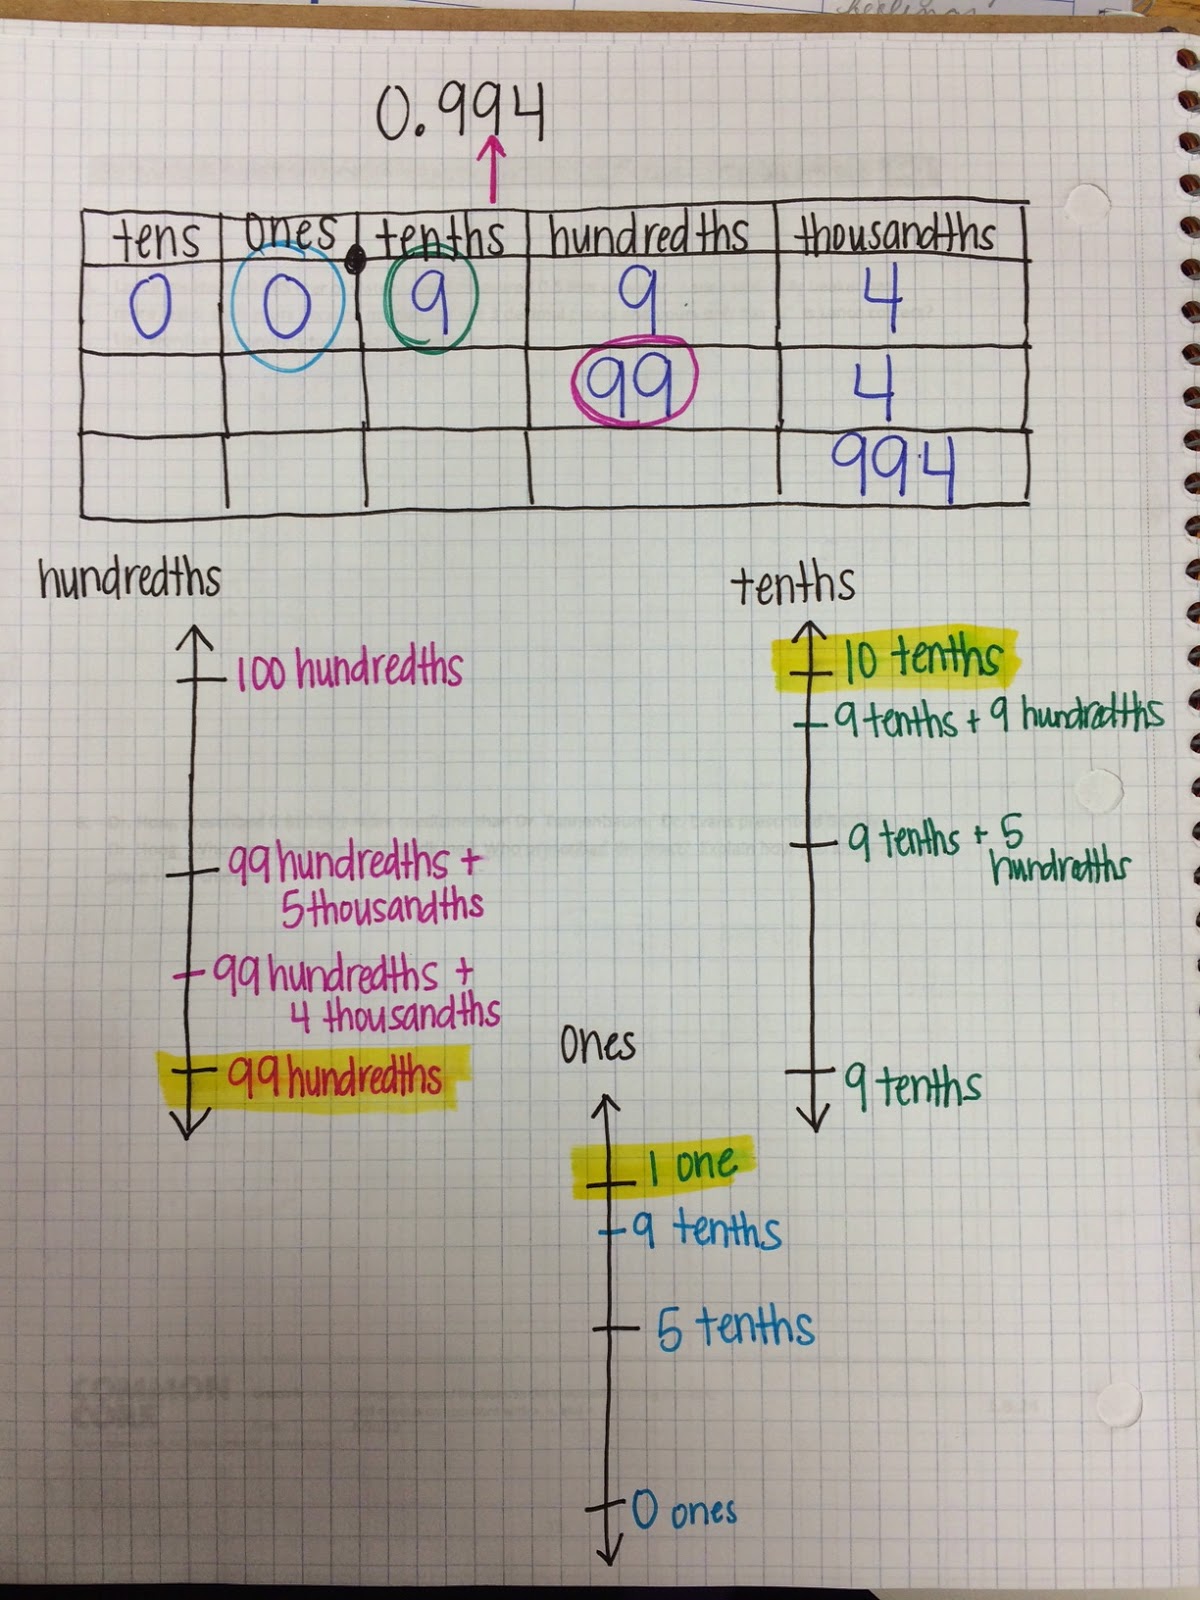 0.994
tens ones tenths hundredths thousandths
0 0 9 9 4
99 4
994
hundredths
100 hundredths
99 hundredths +
5 thousandths
99 hundredths +
4 thousandths
99 hundredths
tenths
10 tenths
9 tenths + 9 hundredths
9 tenths + 5
hundredths
9 tenths
Ones
1 one
9 tenths
5 tenths
0 ones